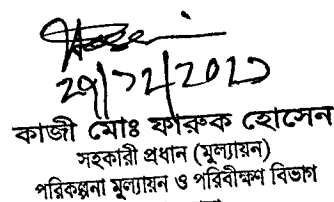 29/12/2020
কাজী মোঃ ফারুক হোসেন
সহকারী প্রধান (মূল্যায়ন)
পরিকল্পনা মূল্যায়ন ও পরিবীক্ষণ বিভাগ